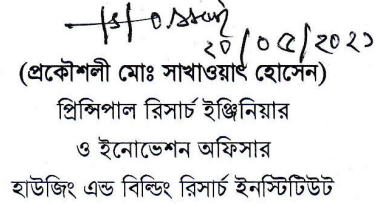 ২০/০৫/২০২১
(প্রকৌশলী মোঃ সাখাওয়াৎ হোসেন)
প্রিন্সিপাল রিসার্চ ইঞ্জিনিয়ার
ও ইনোভেশন অফিসার
হাউজিং এন্ড বিল্ডিং রিসার্চ ইনস্টিটিউট